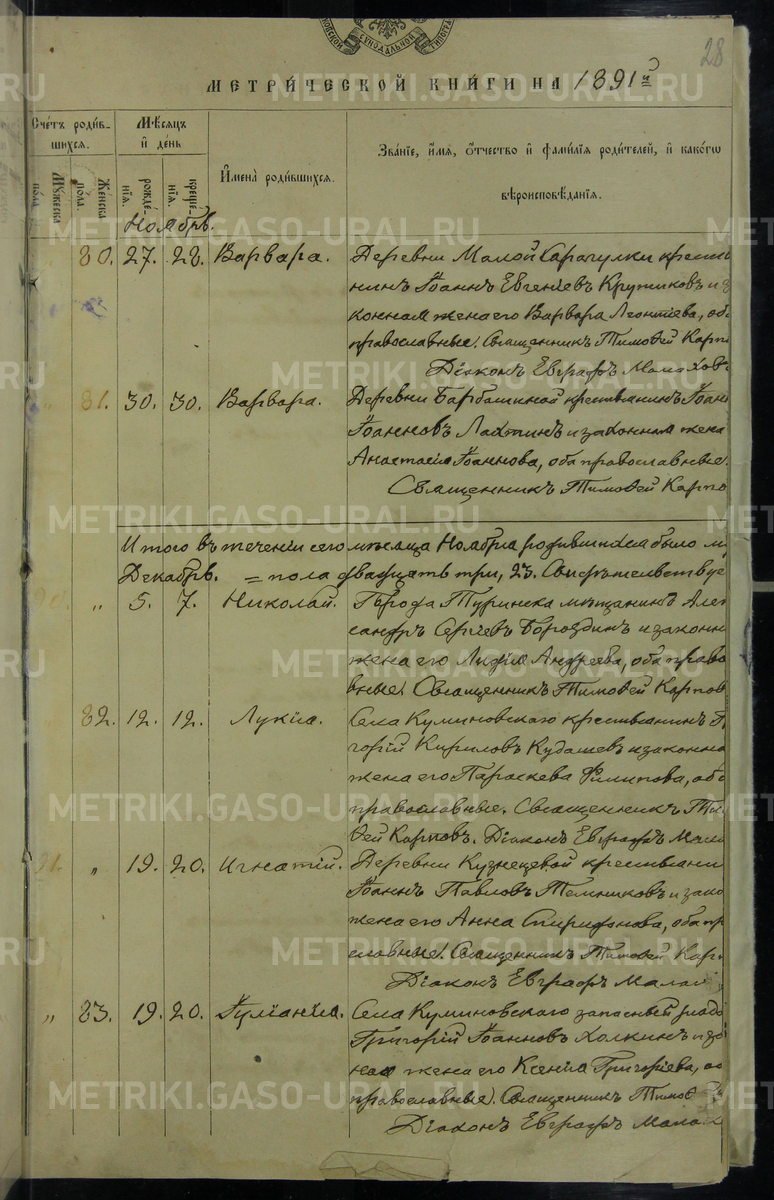 СУНОДАЛЬНОЙ
28
МЕТРИ́ЧЕСКОЙ КНИ́ГИ НА 1891 й
Сче́тъ роди́в-
шихся.
Мѣ́сяцъ
и҆ де́нь
И҆мена̀ роди́вшихся.
Зва́нїе, и҆́мя, ѻ҆́тчество и҆ фами́лїя роди́телей, и҆ како́гѡ
вѣроисповѣ́данїя.
Му́жеска по́ла.
Же́нска по́ла.
рожде́нїя.
креще́нїя.
Ноябрь.
80. 27. 28. Варвара.
Деревни Малой Сарагулки крестья
нинъ Іоаннъ Евгеніевъ Крутиковъ и за
конная жена его Варвара Леонтіева, оба
православные. Священникъ Тимоѳей Карпо
Діаконъ Евграфъ Малаховъ
„ 81. 30. 30. Варвара.
Деревни Барбашиной крестьянинъ Іоанн
Іоанновъ Лахтинъ и законная жена
Анастасія Іоаннова, оба православные.
Священникъ Тимоѳей Карпо
Итого въ теченіи сего мѣсяца Ноября родившихся было м
Декабрь. = пола двадцать три, 23. Свидѣтельствуе
90. „ 5. 7. Николай.
Города Туринска мѣщанинъ Алек
сандръ Сергѣевъ Бороздинъ и законна
жена его Лидія Андреева, оба право
вные. Священникъ Тимоѳей Карпов
82. 12. 12. Лукія.
Села Куминовскаго крестьянинъ Г
горій Кириловъ Кудашевъ и законна
жена его Параскева Филипова, оба
православные. Священникъ Тим
ѳей Карповъ. Діаконъ Евграфъ Мала
91. „ 19. 20. Игнатій.
Деревни Кузнецевой крестьяни
Іоаннъ Павловъ Темниковъ и зако
жена его Анна Спиридонова, оба пр
славные. Священникъ Тимоѳей Карп
Діаконъ Евграфъ Малах
„ 83. 19. 20. Іуліанія.
Села Куминовскаго запасный рядо
Григорій Іоанновъ Холкинъ и за
ная жена его Ксенія Григоріева, об
православные. Священникъ Тимоѳ
Діаконъ Евграфъ Малах
METRIKI.GASO-URAL.RU